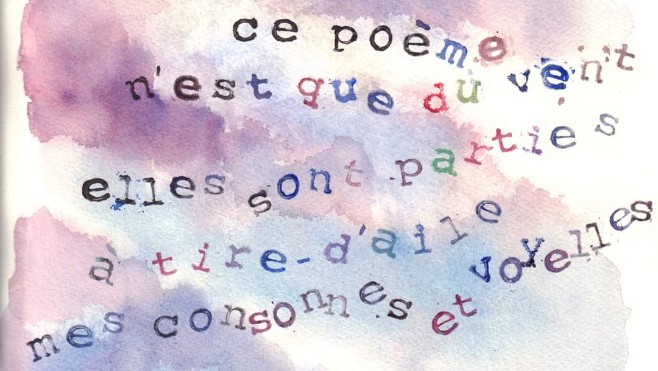 ce poème
n'est que du vent
elles sont parties
à tire-d'aile
mes consonnes et voyelles